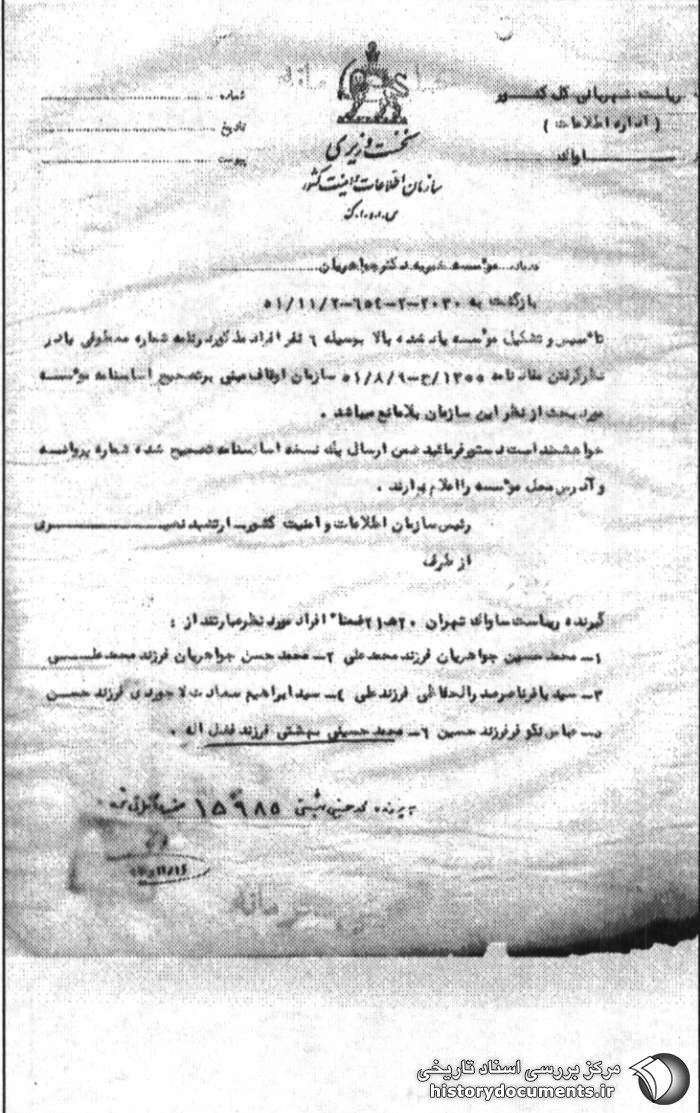 ریاست شهربانی کل کشور
( اداره اطلاعات )
ساواک
شماره
تاریخ
پیوست
نخست وزیری
سازمان اطلاعات و امنیت کشور
س.ا.و.ا.ک
درباره موسسه خیریه دکتر جواهریان
بازگشت به ۲۰۳۰-۲-۶۵۴-۵۱/۱۱/۲
تاسیس و تشکیل موسسه یاد شده بالا بوسیله ۶ نفر افراد مذکور در نامه شماره معطوفی با در
نظر گرفتن مفاد نامه ۱۳۵۵/ح-۵۱/۸/۶ سازمان اوقاف مبنی بر تصحیح اساسنامه موسسه
مورد بحث از نظر این سازمان بلامانع میباشد .
خواهشمند است دستور فرمائید ضمن ارسال یک نسخه اساسنامه تصحیح شده شماره پروانه
و آدرس محل موسسه را اعلام دارند .
رئیس سازمان اطلاعات و امنیت کشور- ارتشبد نصیری
از طرف
گیرنده ریاست ساواک تهران ۲۰ه۲۱ ضمنا افراد مورد نظر عبارتند از :
۱- محمد حسین جواهریان فرزند محمد علی ۲- محمد حسن جواهریان فرزند محمد علی
۳- سید باقر ناصر صدرالحفاظی فرزند علی ۴- سید ابراهیم سعادت لاجوردی فرزند حسن
۵- عباس نکوفر فرزند حسین ۶- محمد حسینی بهشتی فرزند فضل اله .
پرونده محمد حسینی بهشتی ۱۵۹۸۵
۱۱/۱۶
محرمانه
مرکز بررسی اسناد تاریخی
historydocuments.ir